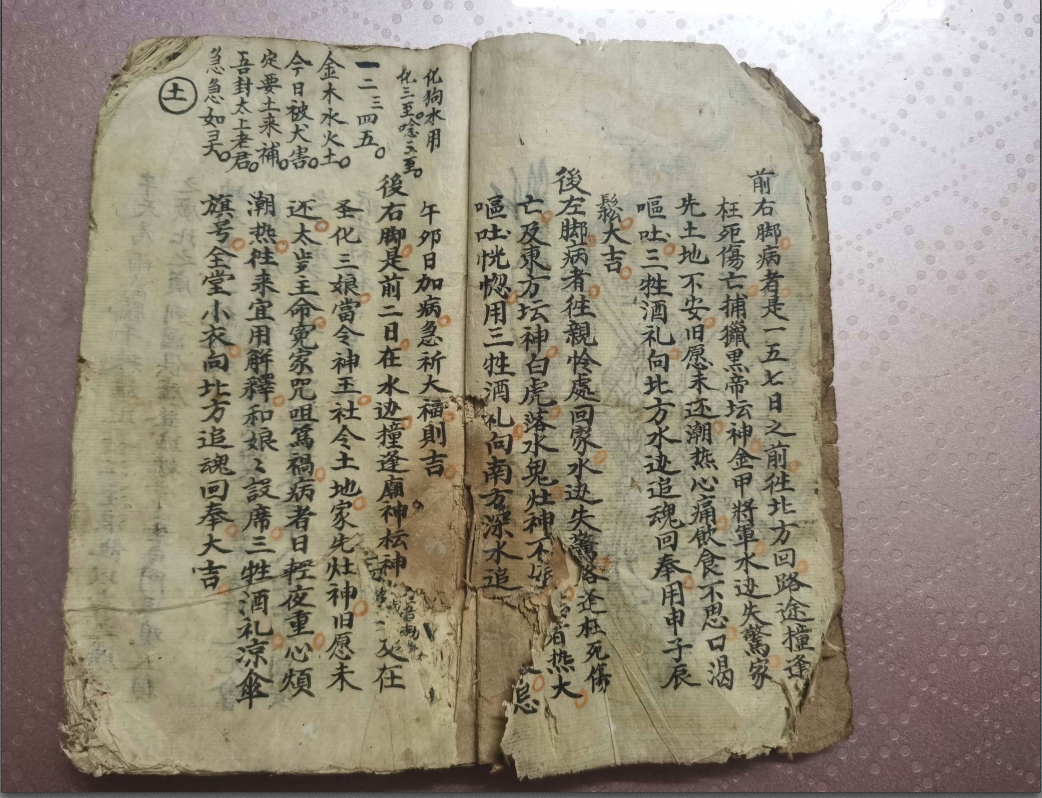 前右脚病者是一五七日之前徃北方回路途撞逢
枉死傷亡捕獵黑帝坛神金甲將軍水边失驚家
先土地不安旧愿未还潮热心痛飲食不思口渴
嘔吐三牲酒礼向北方水边追魂回奉用申子辰
鬆大吉
後左脚病者徃親怜處回家水边失驚落逢枉死傷
亡及東方坛神白虎落水鬼灶神不 者热大
嘔吐恍惚用三牲酒礼向南方深水追 忌
午夘日加病急祈大福則吉
後右脚是前二日在水边撞逢廟神坛神 又在
圣化三娘當令神王社令土地家先灶神旧愿未
还太岁王命冤家咒咀為禍病者日輕夜重心煩
潮热徃来宜用解釋和娘〻設席三牲酒礼凉傘
旗号全堂小衣向北方追魂回奉大吉
化狗水用
化三至唸三至
一二三四五
金木水火土
今日被犬害
定要土来補
吾封太上老君
急急如
土